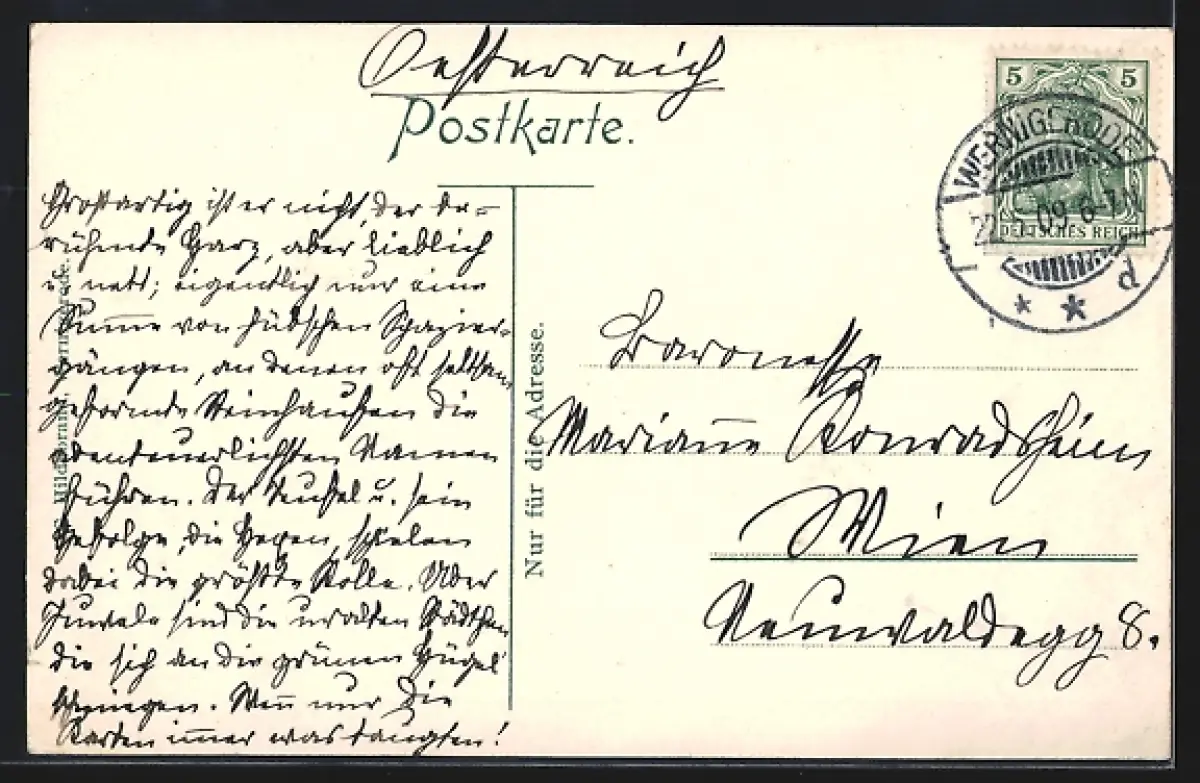 Oesterreich
Postkarte.
5 5
DEUTSCHES REICH
WERNIGERODE
22.5.09 6-7N
d
Großartig ist er nicht, der be-
rühmte Harz, aber lieblich
u. nett; eigentlich nur eine
Summe von hübschen Spazier-
gängen, an denen oft seltsam
geformte Steinhaufen die
abenteuerlichsten Namen
führen. Der Teufel u. sein
Gefolge, die Hexen, spielen
dabei die größte Rolle. Aber
Juwele sind die uralten Städtchen
die sich an die grünen Hügel
schmiegen. Wenn nur die
Karten immer was taugten!
Nur für die Adresse.
Baronesse
Marianne Konradsheim
Wien
Neuwaldegg 8.